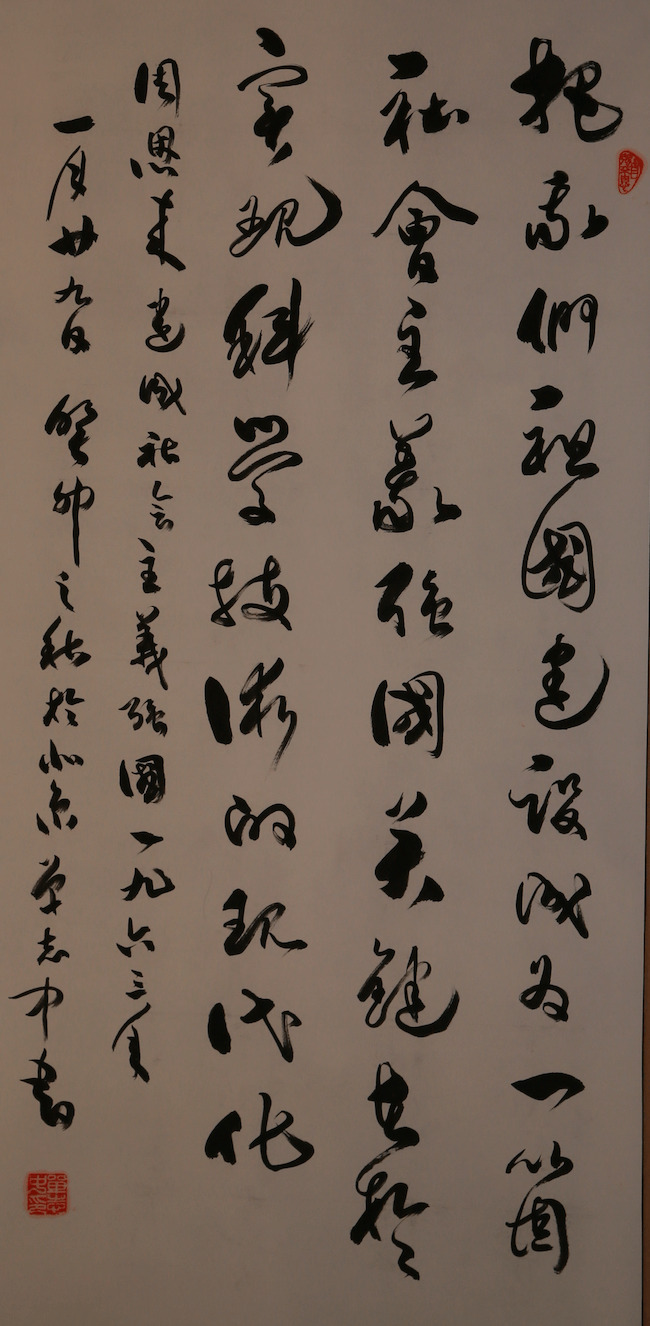 把我們祖國建設成為一箇
社會主義強國关鍵在於
实現科学技術的現代化
周恩来建成社会主義強國一九六三年
一月廿九日 癸卯之秋於北京 志中書